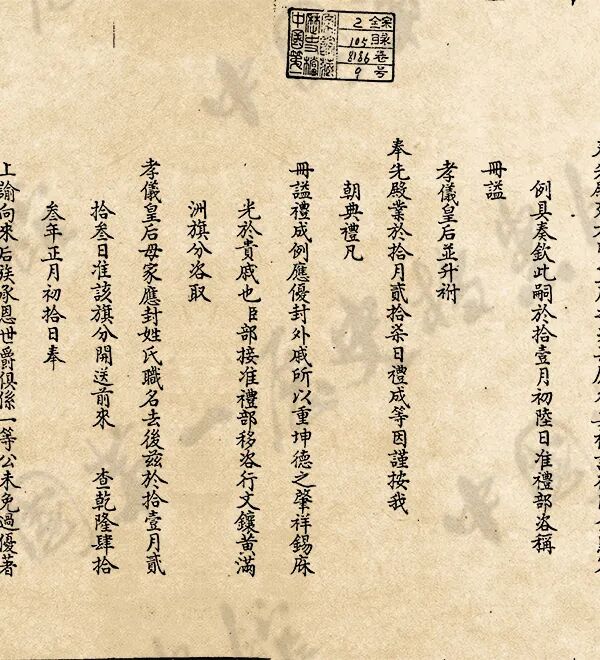 例具奏欽此嗣於拾壹月初陸日准禮部咨稱
冊謚
孝儀皇后並升祔
奉先殿業於拾月貳拾柒日禮成等因謹按我
朝典禮凡
冊謚禮成例應優封外戚所以重坤德之肇祥錫庥
光於貴戚也臣部接准禮部移咨行文鑲黃滿
洲旗分咨取
孝儀皇后母家應封姓氏職名去後茲於拾壹月貳
拾叁日准該旗分開送前來 查乾隆肆拾
叁年正月初拾日奉
上諭向來后族承恩世爵俱係一等公未免過優著
2
105
8186
9